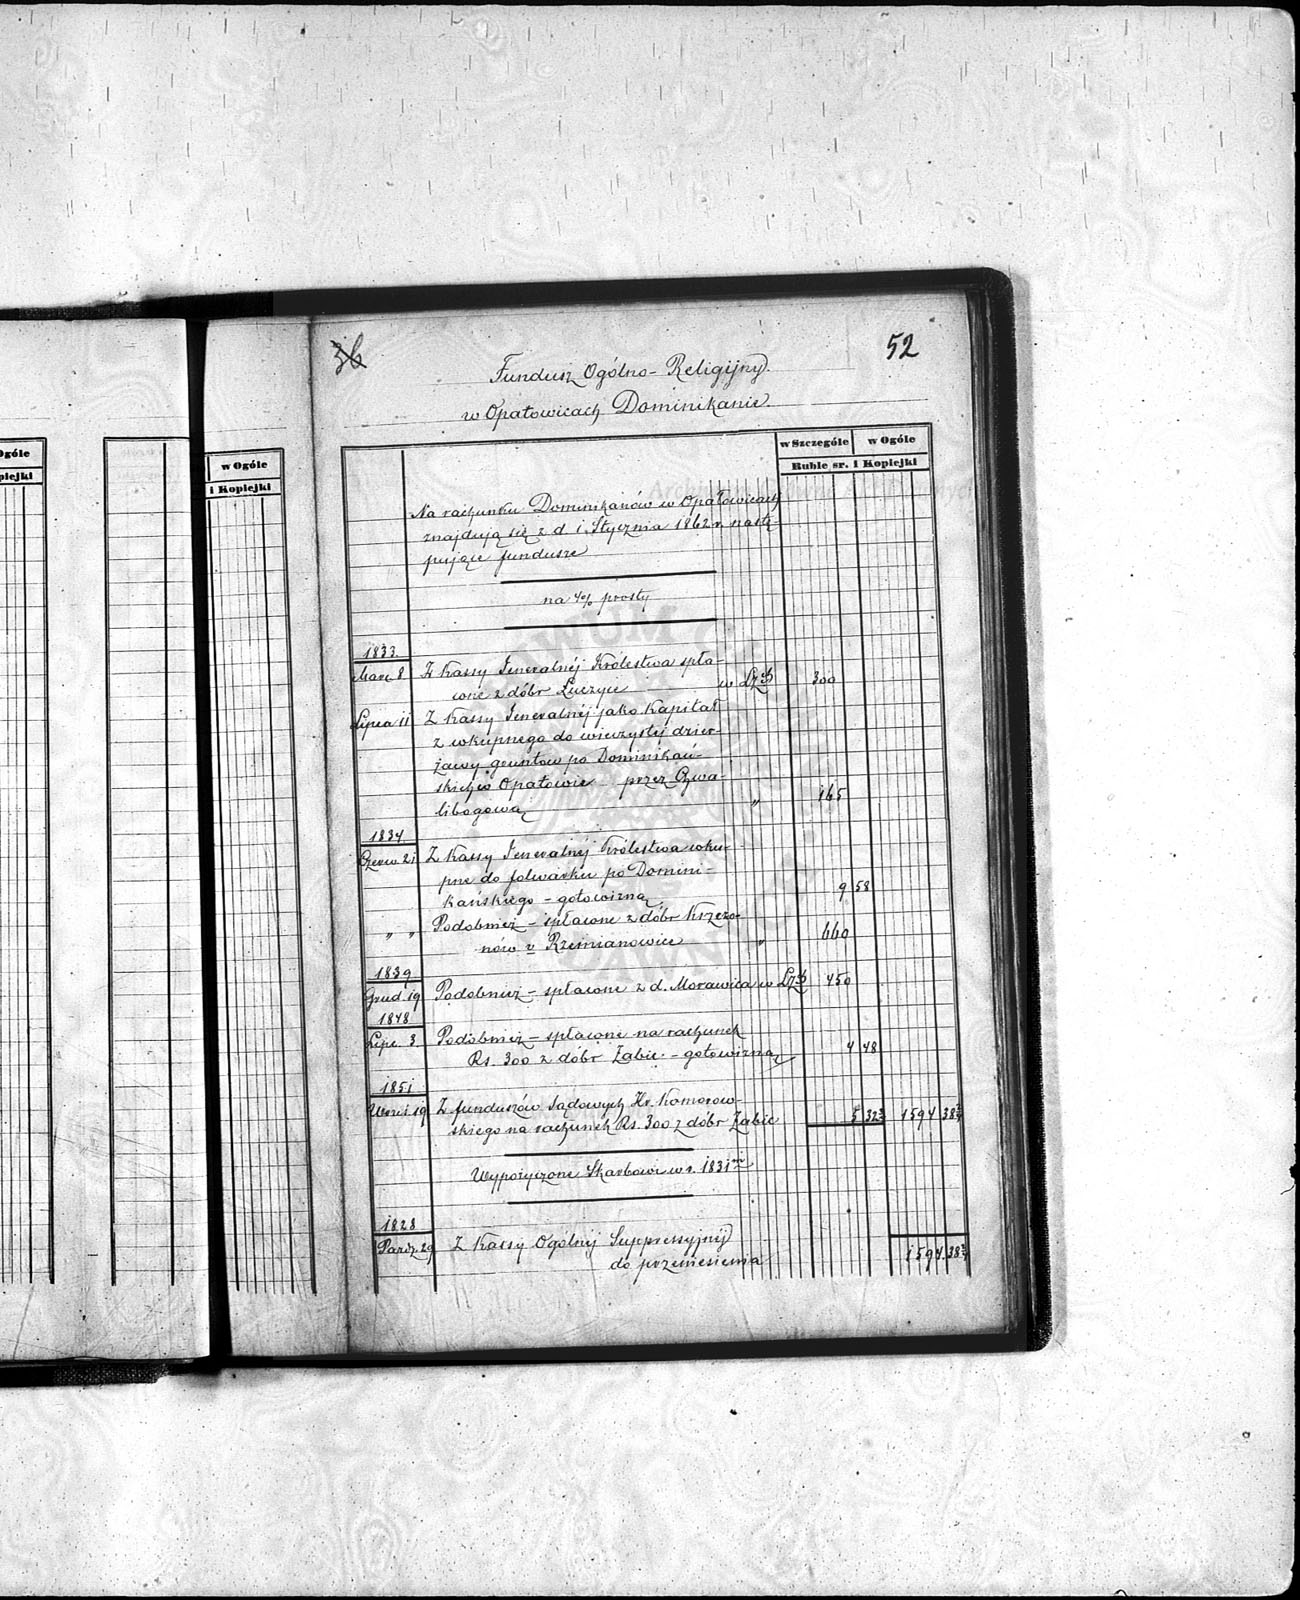 36
52
Fundusz Ogólno-Religijny.
w Opatowicach Dominikanie.
Ogóle
w Ogóle
w Szczególe
w Ogóle
piejki
i Kopiejki
Ruble sr. i Kopiejki
Na rachunku Dominikanów w Opatowicach
znajdują się z d. 1. Stycznia 1862 r. nastę-
pujące fundusze
na 4% prosty
1833.
Marc. 8 Z Kassy Jeneralnéj Królestwa spła-
cone z dóbr Łuczyce w Lzch 300
Lipca 11 Z Kassy Jeneralnéj jako Kapitał
z wkupnego do wieczystéj dzier-
żawy gruntów po Dominikań-
skich w Opatowie przez
libogową " 165
1834.
Czerw. 21 Z Kassy Jeneralnéj Królestwa wku-
pne do folwarku po Domini-
kańskiego - gotowizną 9 58
" " Podobnież - spłacone z dóbr Krzczo-
nów v Rzemianowice " 660
1839
Grud. 19 Podobnież - spłacone z d. Morawica w Lzch 450
1848
Lipc. 3 Podobnież - spłacone na rachunek
Rs. 300 z dóbr Żabic. - gotowizną 4 48
1851
Wrześ. 19 Z funduszów Sądowych Hr. Komorow-
skiego na rachunek Rs. 300 z dóbr Żabic 5 32¾ 1594 38¾
Wypożyczone Skarbowi w r. 1831m
1828
Paźdz. 29 Z Kassy Ogólnéj Suppressyjnéj
do przeniesienia 1594 38¾